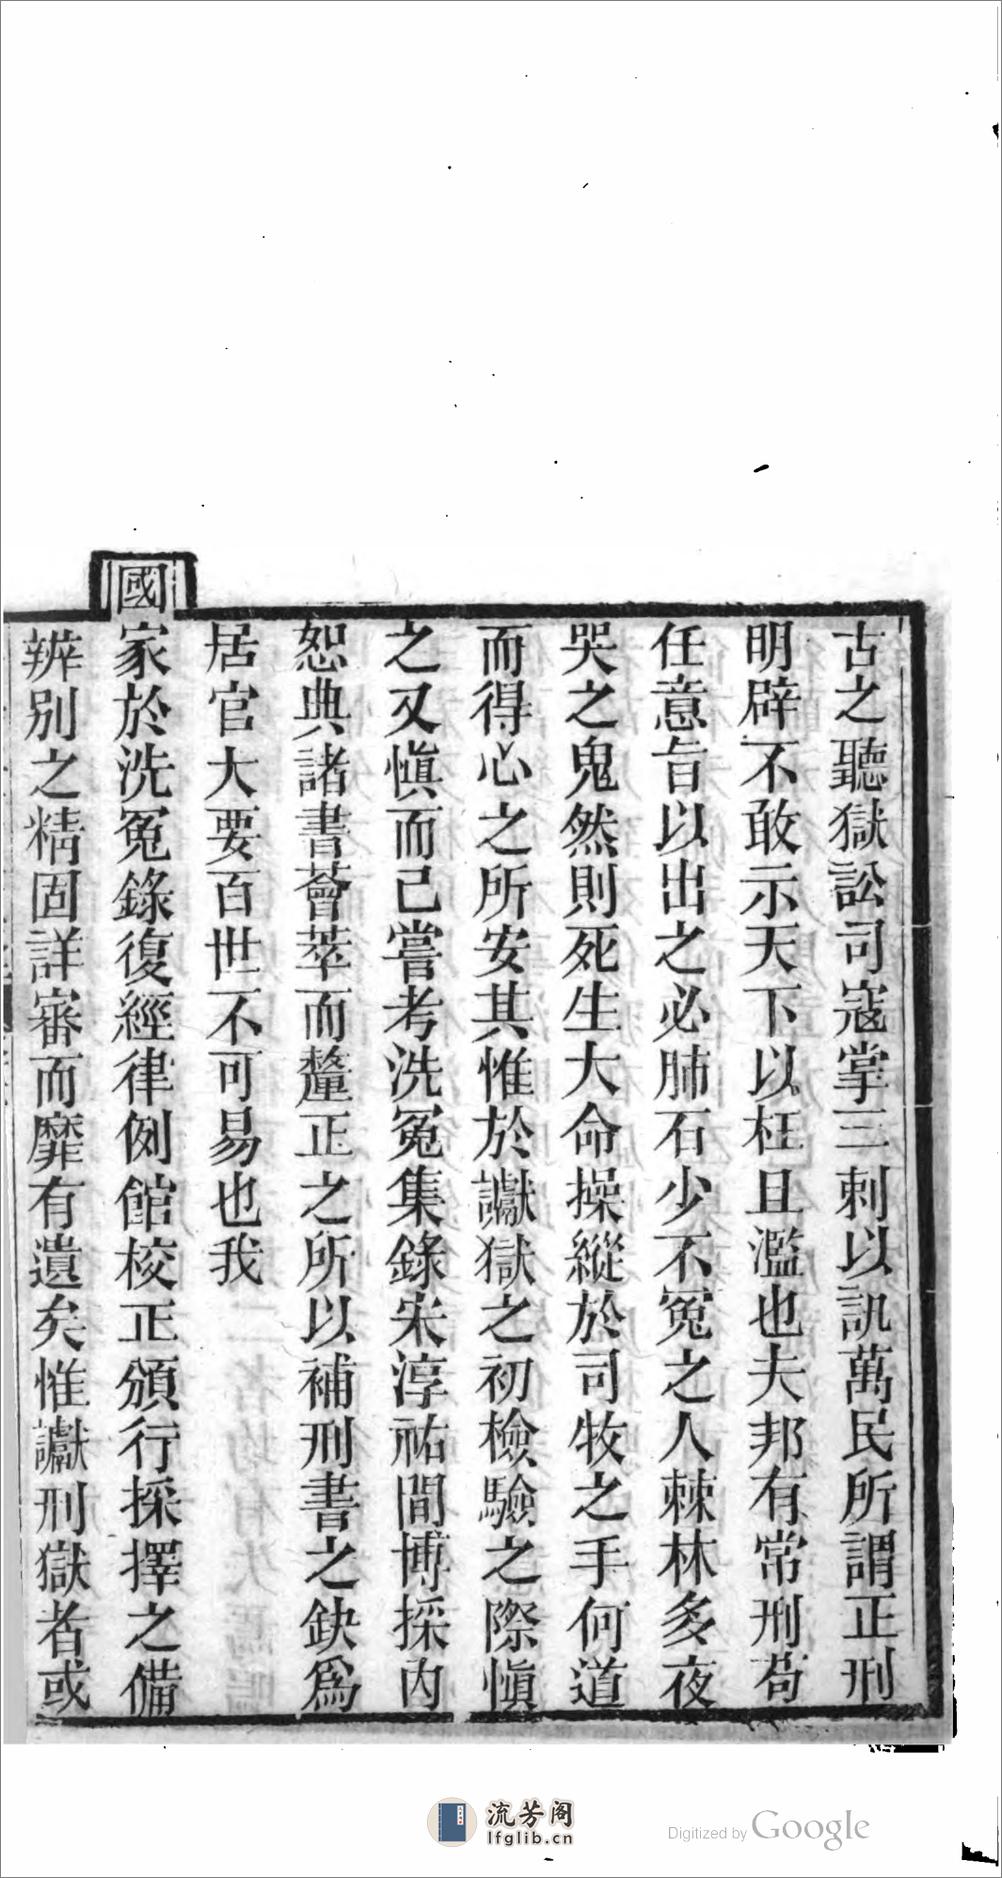 古之聽獄訟司寇掌三刺以訊萬民所謂正刑
明辟不敢示天下以枉且濫也夫邦有常刑苟
任意旨以出之必肺石少不冤之人棘林多夜
哭之鬼然則死生大命操縱於司牧之手何道
而得心之所安其惟於讞獄之初檢驗之際愼
之又愼而已嘗考洗冤集錄宋淳祐間博採內
恕典諸書薈萃而釐正之所以補刑書之缺爲
居官大要百世不可易也我
國家於洗冤錄復經律例館校正頒行採擇之備
辨別之精固詳審而靡有遺矣惟讞刑獄者或
流芳阁
lfglib.cn
Digitized by Google